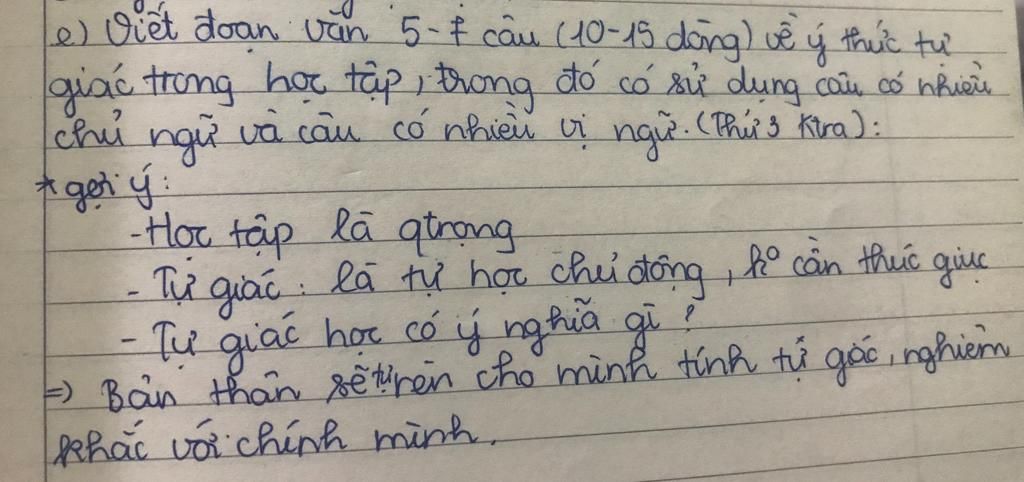 e) Viết đoạn văn 5-7 câu (10-15 dòng) về ý thức tự
giác trong học tập, trong đó có sử dụng câu có nhiều
chủ ngữ và câu có nhiều vị ngữ. (Thứ 3 Ktra):
* gợi ý:
- Học tập là qtrọng
- Tự giác: là tự học chủ động, ko cần thúc giục
- Tự giác học có ý nghĩa gì?
=) Bản thân sẽ tự rèn cho mình tính tự gác, nghiêm
khắc với chính mình.